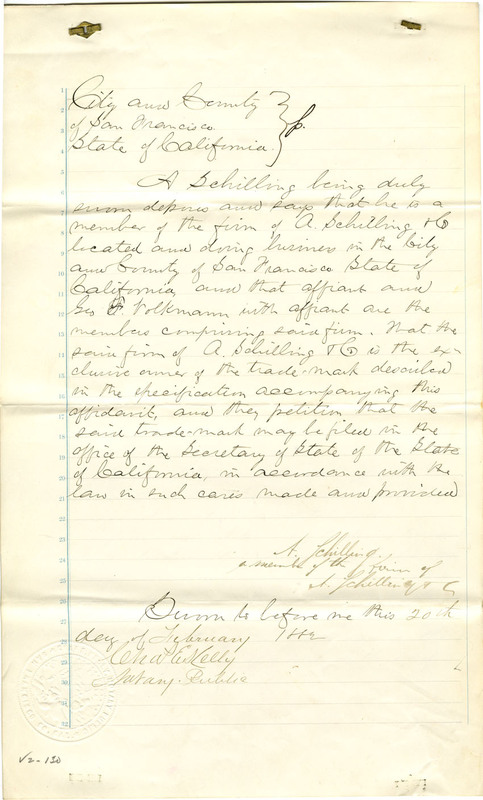 City and County
of San Francisco
State of California.
A Schilling being duly
sworn deposes and says that he is a
member of the firm of A. Schilling & Co
located and doing business in the City
and County of San Francisco State of
California, and that affiant and
Geo F. Volkmann with affiant are the
members comprising said firm. That the
said firm of A. Schilling & Co is the ex-
clusive owner of the trade-mark described
in the specification accompanying this
affidavit, and they petition that the
said trade-mark may be filed in the
office of the Secretary of State of the State
of California, in accordance with the
law in such cases made and provided
A. Schilling.
a member of the firm of
A. Schilling & Co
Sworn to before me this 20th
day of February 1882
Chas E Kelly
Notary Public
V2-130